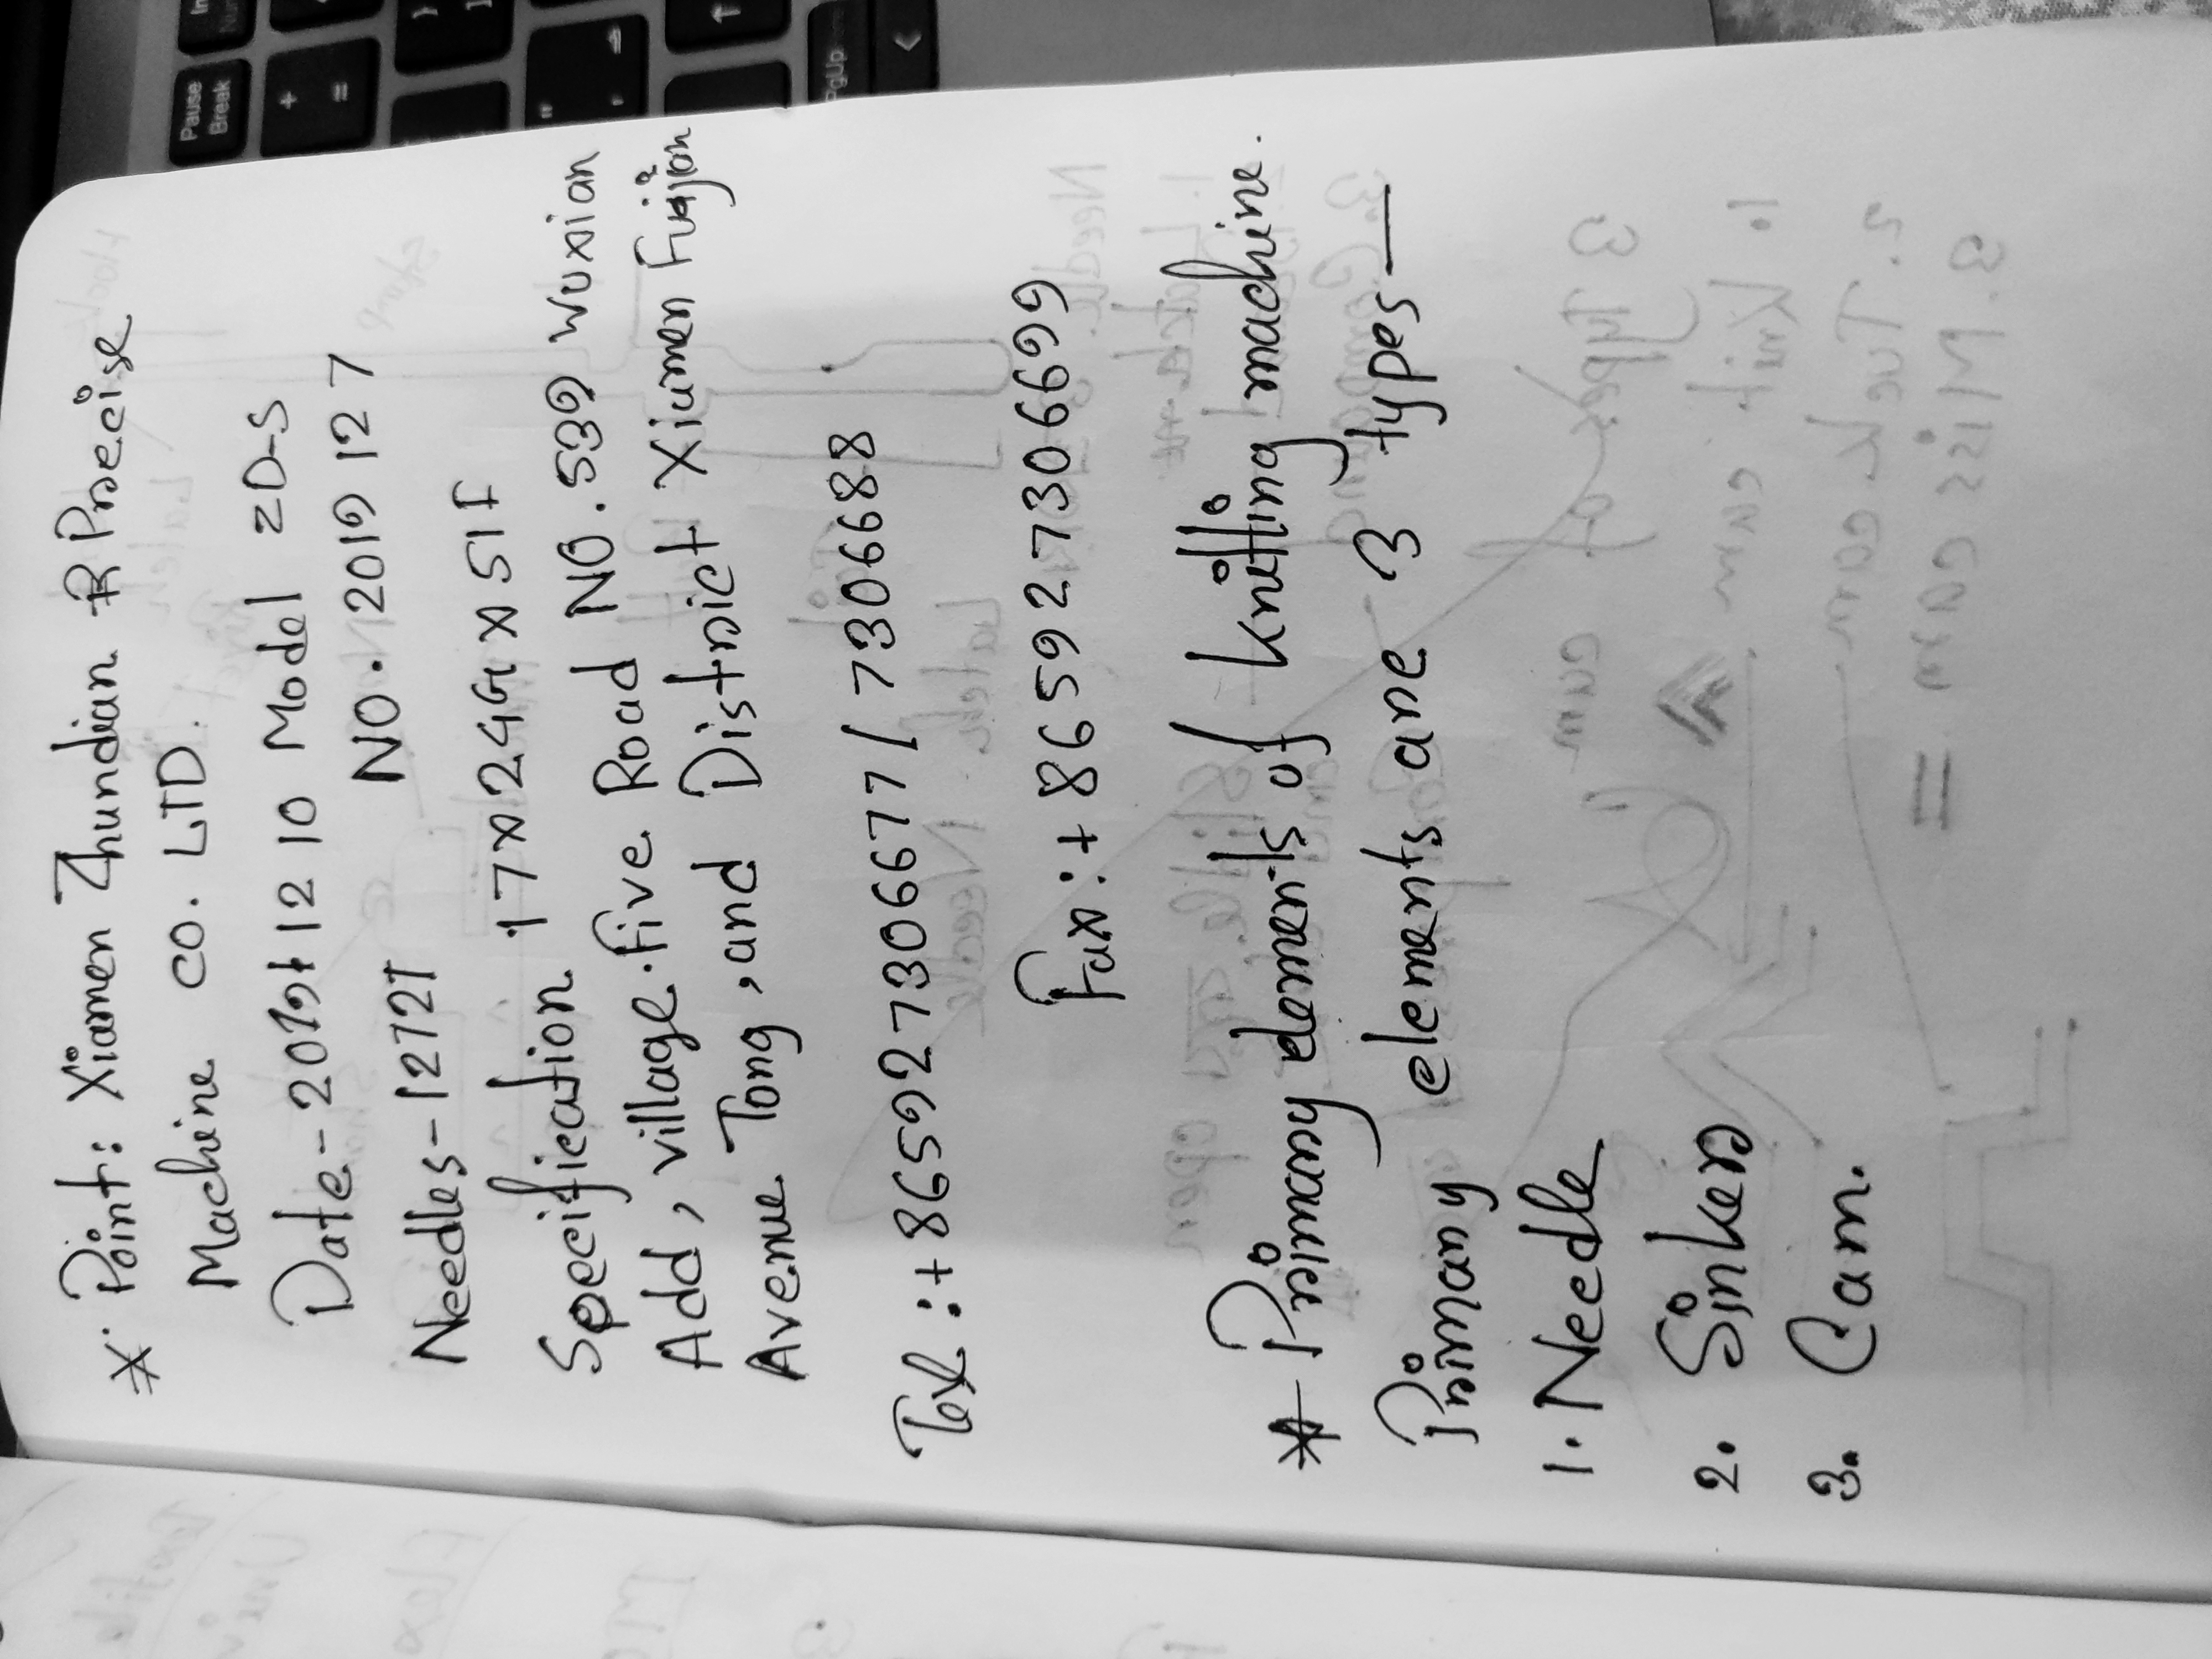 * Point: Xiamen Zhundian Precise
Machine CO. LTD.
Date-2019 12 10 Model ZD-S
Needles-1272T NO. 2019 12 7
Specification 17x24Gx51F
Add, village.Five Road NO.539 Wuxian
Avenue Tong, and District Xiamen Fujian
Tel :+865927306677/7306688
Fax:+865927306699
* Primary elements of knitting machine.
Primary elements are 3 types—
1. Needle
2. Sinker
3. Cam.
Pause
Break
PgUp